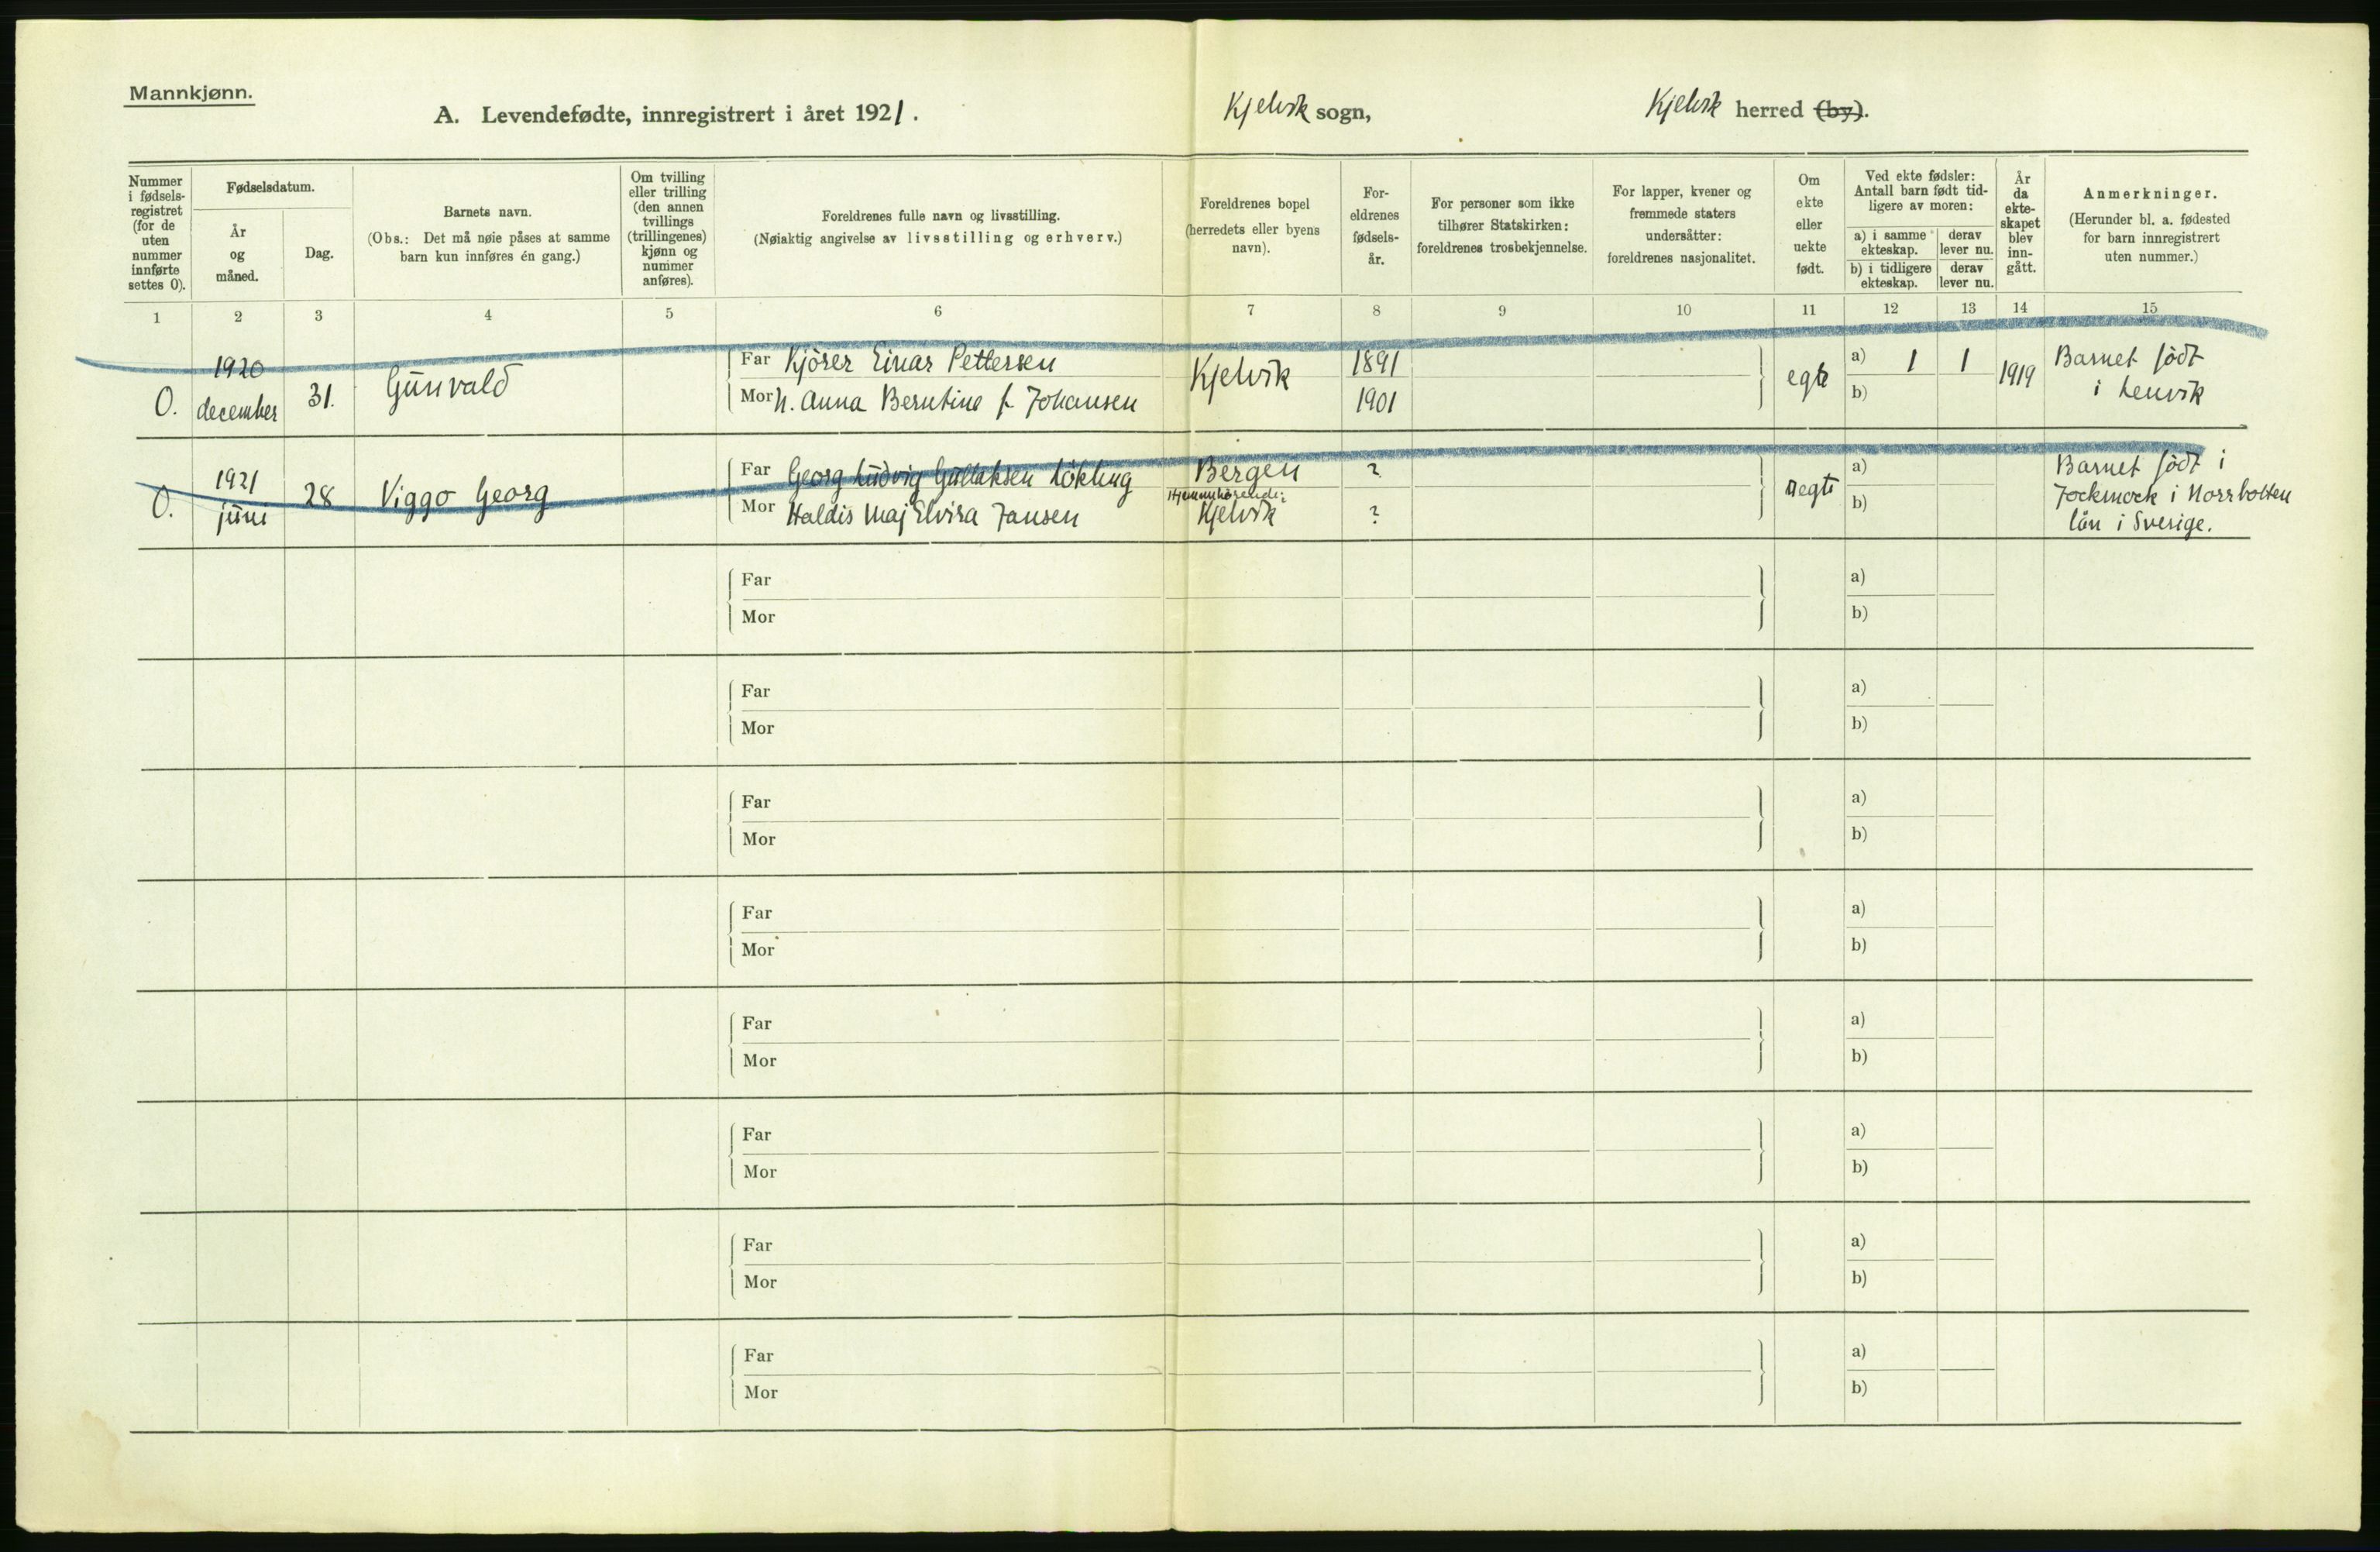 Mannkjønn.
A. Levendefødte, innregistrert i året 1921.
Kjelvik sogn,
Kjelvik herred (by).
Nummer
i fødsels-
registret
(for de
uten
nummer
innførte
settes 0).
Fødselsdatum.
År
og
måned.
Dag.
Barnets navn.
(Obs.: Det må nøie påses at samme
barn kun innføres én gang.)
Om tvilling
eller trilling
(den annen
tvillings
(trillingenes)
kjønn og
nummer
anføres).
Foreldrenes fulle navn og livsstilling.
(Nøiaktig angivelse av livsstilling og erhverv.)
Foreldrenes bopel
(herredets eller byens
navn).
For-
eldrenes
fødsels-
år.
For personer som ikke
tilhører Statskirken:
foreldrenes trosbekjennelse.
For lapper, kvener og
fremmede staters
undersåtter:
foreldrenes nasjonalitet.
Om
ekte
eller
uekte
født.
Ved ekte fødsler:
Antall barn født tid-
ligere av moren:
a) i samme
ekteskap.
derav
lever nu.
b) i tidligere
ekteskap.
derav
lever nu.
År
da
ekte-
skapet
blev
inn-
gått.
Anmerkninger.
(Herunder bl. a. fødested
for barn innregistrert
uten nummer.)
1 2 3 4 5 6 7 8 9 10 11 12 13 14 15
0. 1920 december 31. Gunvald
Far Kjører Einar Pettersen
Mor h. Anna Berntine f. Johansen
Kjelvik
1891
1901
egte
a) 1 1
b)
1919
Barnet født
i Lenvik
0. 1921 juni 28 Viggo Georg
Far Georg Ludvig Gullaksen Løkling
Mor Haldis Maj Elvira Jansen
Bergen
Hjemmhørende:
Kjelvik
?
?
uegte
a)
b)
Barnet født i
Jockmock i Norrbotten
län i Sverige.
Far a)
Mor b)
Far a)
Mor b)
Far a)
Mor b)
Far a)
Mor b)
Far a)
Mor b)
Far a)
Mor b)
Far a)
Mor b)
Far a)
Mor b)